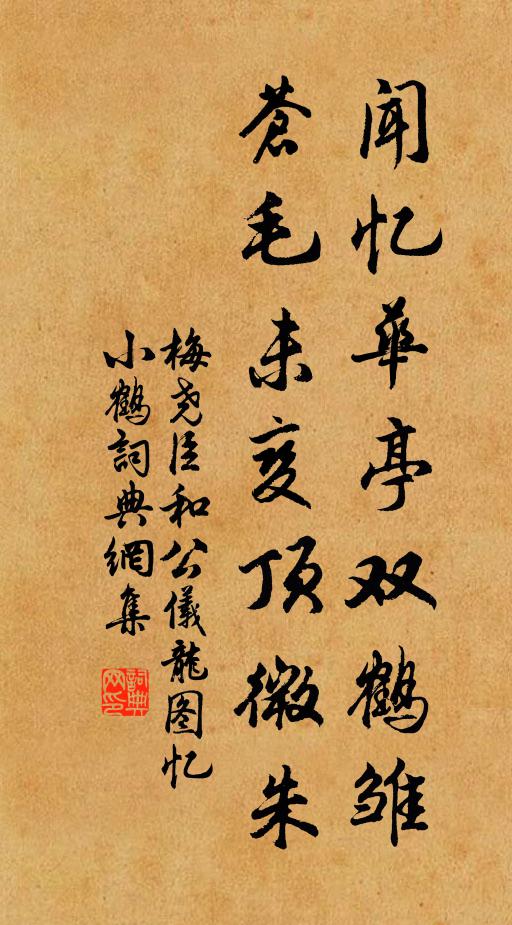 闻忆华亭双鹤雏
苍毛未变顶微朱
梅尧臣和公仪龙图忆
小鹤词典网集
词典网印